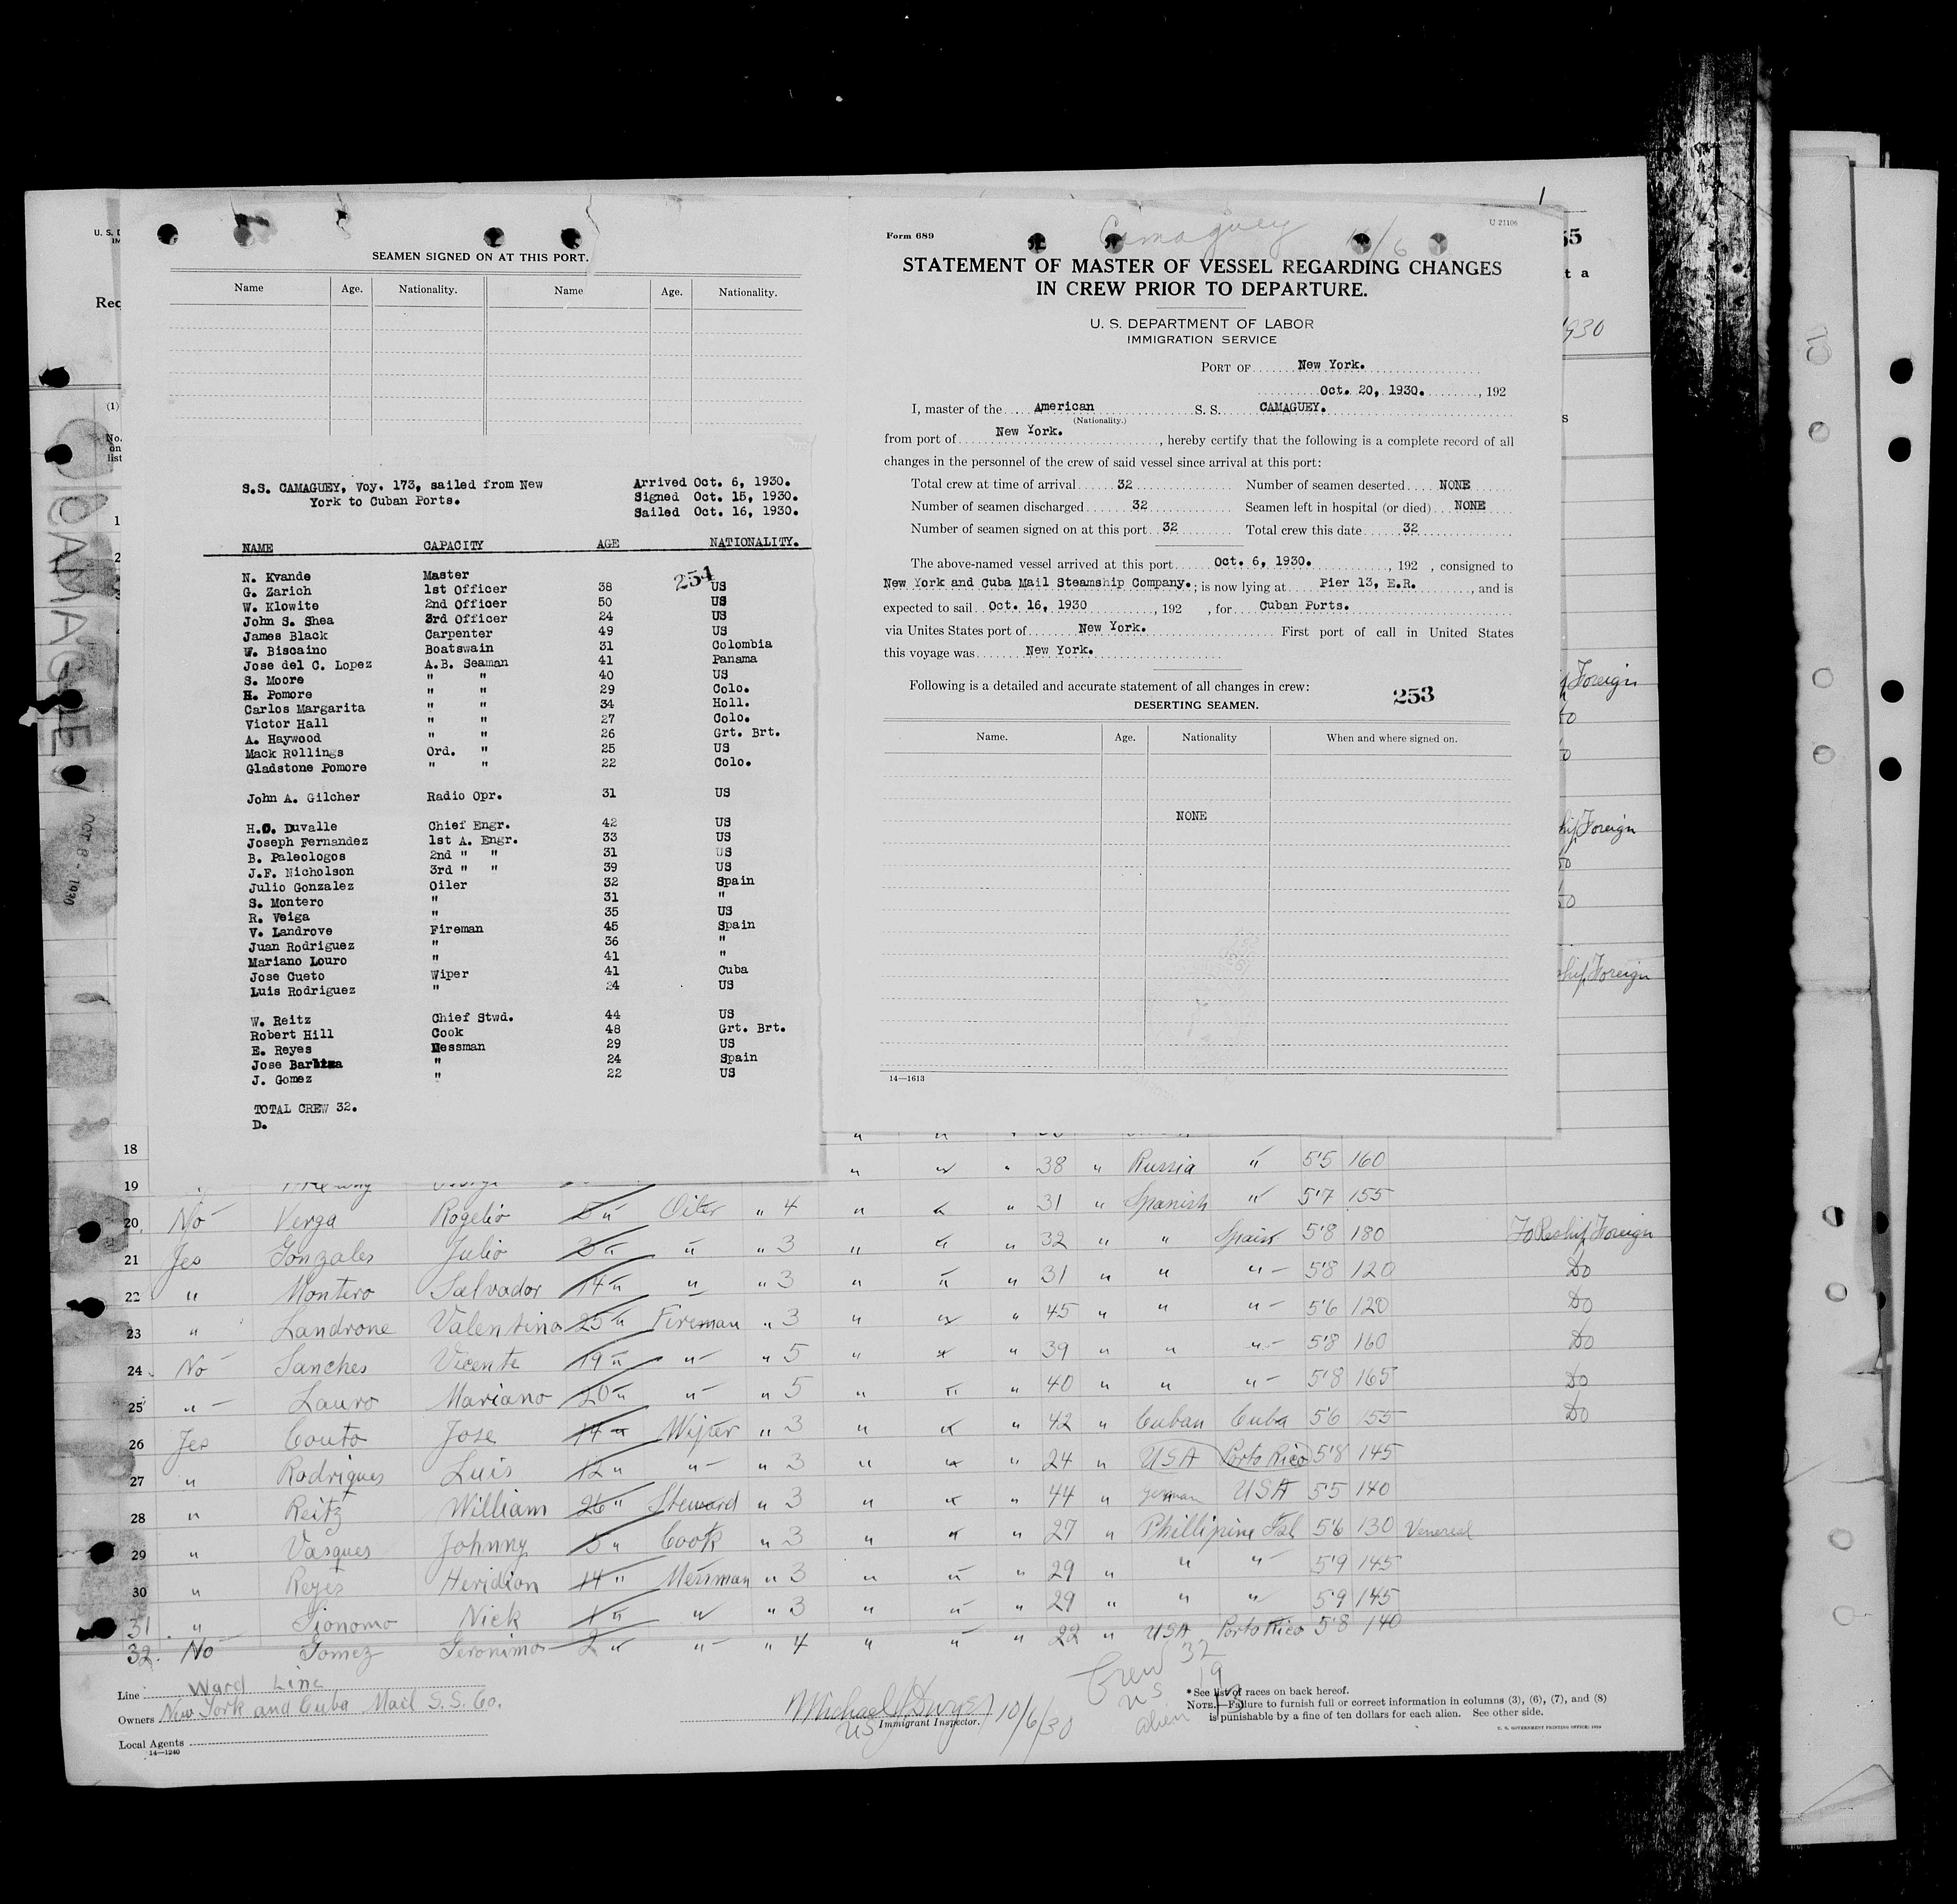 SEAMEN SIGNED ON AT THIS PORT.
Name Age. Nationality. Name Age. Nationality.
S.S. CAMAGUEY, Voy. 173, sailed from New
York to Cuban Ports.
Arrived Oct. 6, 1930.
Signed Oct. 15, 1930.
Sailed Oct. 16, 1930.
NAME CAPACITY AGE NATIONALITY.
254
N. Kvande Master
G. Zarich 1st Officer 38 US
W. Klowite 2nd Officer 50 US
John S. Shea 3rd Officer 24 US
James Black Carpenter 49 US
W. Biscaino Boatswain 31 Colombia
Jose del C. Lopez A.B. Seaman 41 Panama
S. Moore " " 40 US
H. Pomore " " 29 Colo.
Carlos Margarita " " 34 Holl.
Victor Hall " " 27 Colo.
A. Haywood " " 26 Grt. Brt.
Mack Rollings Ord. " 25 US
Gladstone Pomore " " 22 Colo.
John A. Gilcher Radio Opr. 31 US
H.C. Duvalle Chief Engr. 42 US
Joseph Fernandez 1st A. Engr. 33 US
B. Paleologos 2nd " " 31 US
J.F. Nicholson 3rd " " 39 US
Julio Gonzalez Oiler 32 Spain
S. Montero " 31 "
R. Veiga " 35 US
V. Landrove Fireman 45 Spain
Juan Rodriguez " 36 "
Mariano Louro " 41 "
Jose Cueto Wiper 41 Cuba
Luis Rodriguez " 24 US
W. Reitz Chief Stwd. 44 US
Robert Hill Cook 48 Grt. Brt.
E. Reyes Messman 29 US
Jose " 24 Spain
J. Gomez " 22 US
TOTAL CREW 32.
D.
Camaguey 10/6
Form 689
U 21106
STATEMENT OF MASTER OF VESSEL REGARDING CHANGES
IN CREW PRIOR TO DEPARTURE.
U. S. DEPARTMENT OF LABOR
IMMIGRATION SERVICE
PORT OF New York.
Oct. 20, 1930. , 192
I, master of the American S. S. CAMAGUEY.
(Nationality.)
from port of New York. , hereby certify that the following is a complete record of all
changes in the personnel of the crew of said vessel since arrival at this port:
Total crew at time of arrival 32 Number of seamen deserted NONE
Number of seamen discharged 32 Seamen left in hospital (or died) NONE
Number of seamen signed on at this port 32 Total crew this date 32
The above-named vessel arrived at this port Oct. 6, 1930. , 192 , consigned to
New York and Cuba Mail Steamship Company. ; is now lying at Pier 13, E.R. , and is
expected to sail Oct. 16, 1930 , 192 , for Cuban Ports.
via Unites States port of New York. First port of call in United States
this voyage was New York.
Following is a detailed and accurate statement of all changes in crew:
DESERTING SEAMEN.
253
Name. Age. Nationality When and where signed on.
NONE
14—1613
CAMAGUEY
OCT 8 - 1930
18 " " " 38 " Russia " 5'5 160
19
20 No Verga Rogelio 5 " Oiler " 4 " " " 31 " Spanish " 5'7 155
21 Yes Gonzales Julio 3 " " " 3 " " " 32 " " Spain 5'8 180 To Reship Foreign
22 " Montero Salvador 14 " " " 3 " " " 31 " " " 5'8 120 Do
23 " Landrone Valentino 25 " Fireman " 3 " " " 45 " " " 5'6 120 Do
24 No Sanches Vicente 19 " " " 5 " " " 39 " " " 5'8 160 Do
25 " Lauro Mariano 20 " " " 5 " " " 40 " " " 5'8 165 Do
26 Yes Couto Jose 14 " Wiper " 3 " " " 42 " Cuban Cuba 5'6 155 Do
27 " Rodrigues Luis 12 " " " 3 " " " 24 " USA Porto Rico 5'8 145
28 " Reitz William 26 " Steward " 3 " " " 44 " German USA 5'5 140
29 " Vasques Johnny 5 " Cook " 3 " " " 27 " Phillipine Isl 5'6 130 Venereal
30 " Reyes Heridion 14 " Messman " 3 " " " 29 " " " 5'9 145
31 " Nick 1 " " " 3 " " " 29 " " " 5'9 145
32 No Gomez Geronimo 2 " " " 4 " " " 22 " USA Porto Rico 5'8 140
Crew 32
US 19
alien 13
Line Ward Line
Owners New York and Cuba Mail S.S. Co.
Local Agents
14—1240
Michael 10/6/30
US Immigrant Inspector.
* See list of races on back hereof.
NOTE.—Failure to furnish full or correct information in columns (3), (6), (7), and (8)
is punishable by a fine of ten dollars for each alien. See other side.
U. S. GOVERNMENT PRINTING OFFICE: 1929